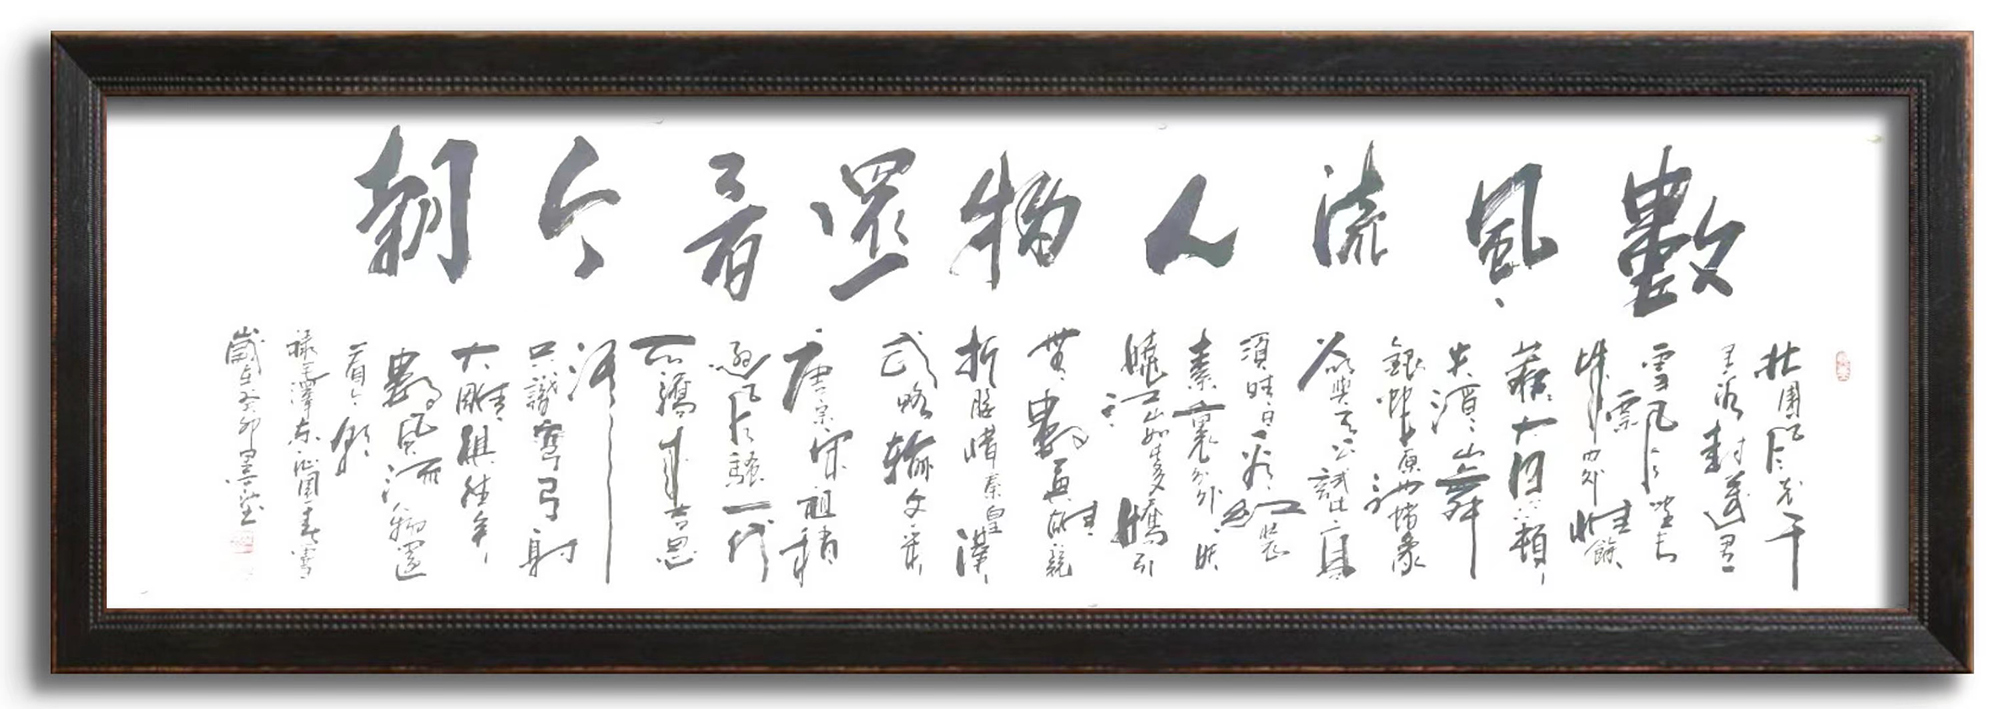 數風流人物還看今朝
北國風光千
里冰封萬里
雪飄望長
城內外惟餘
莽莽大河上下頓
失滔滔山舞
銀蛇原馳蠟象
欲與天公試比高
須晴日看紅裝
素裹分外妖
嬈江山如此多嬌引
無數英雄競
折腰惜秦皇漢
武略輸文采
唐宗宋祖稍
遜風騷一代
天驕成吉思
汗
只識彎弓射
大雕俱往矣
數風流人物還
看今朝
錄毛澤東沁園春雪
歲在癸卯